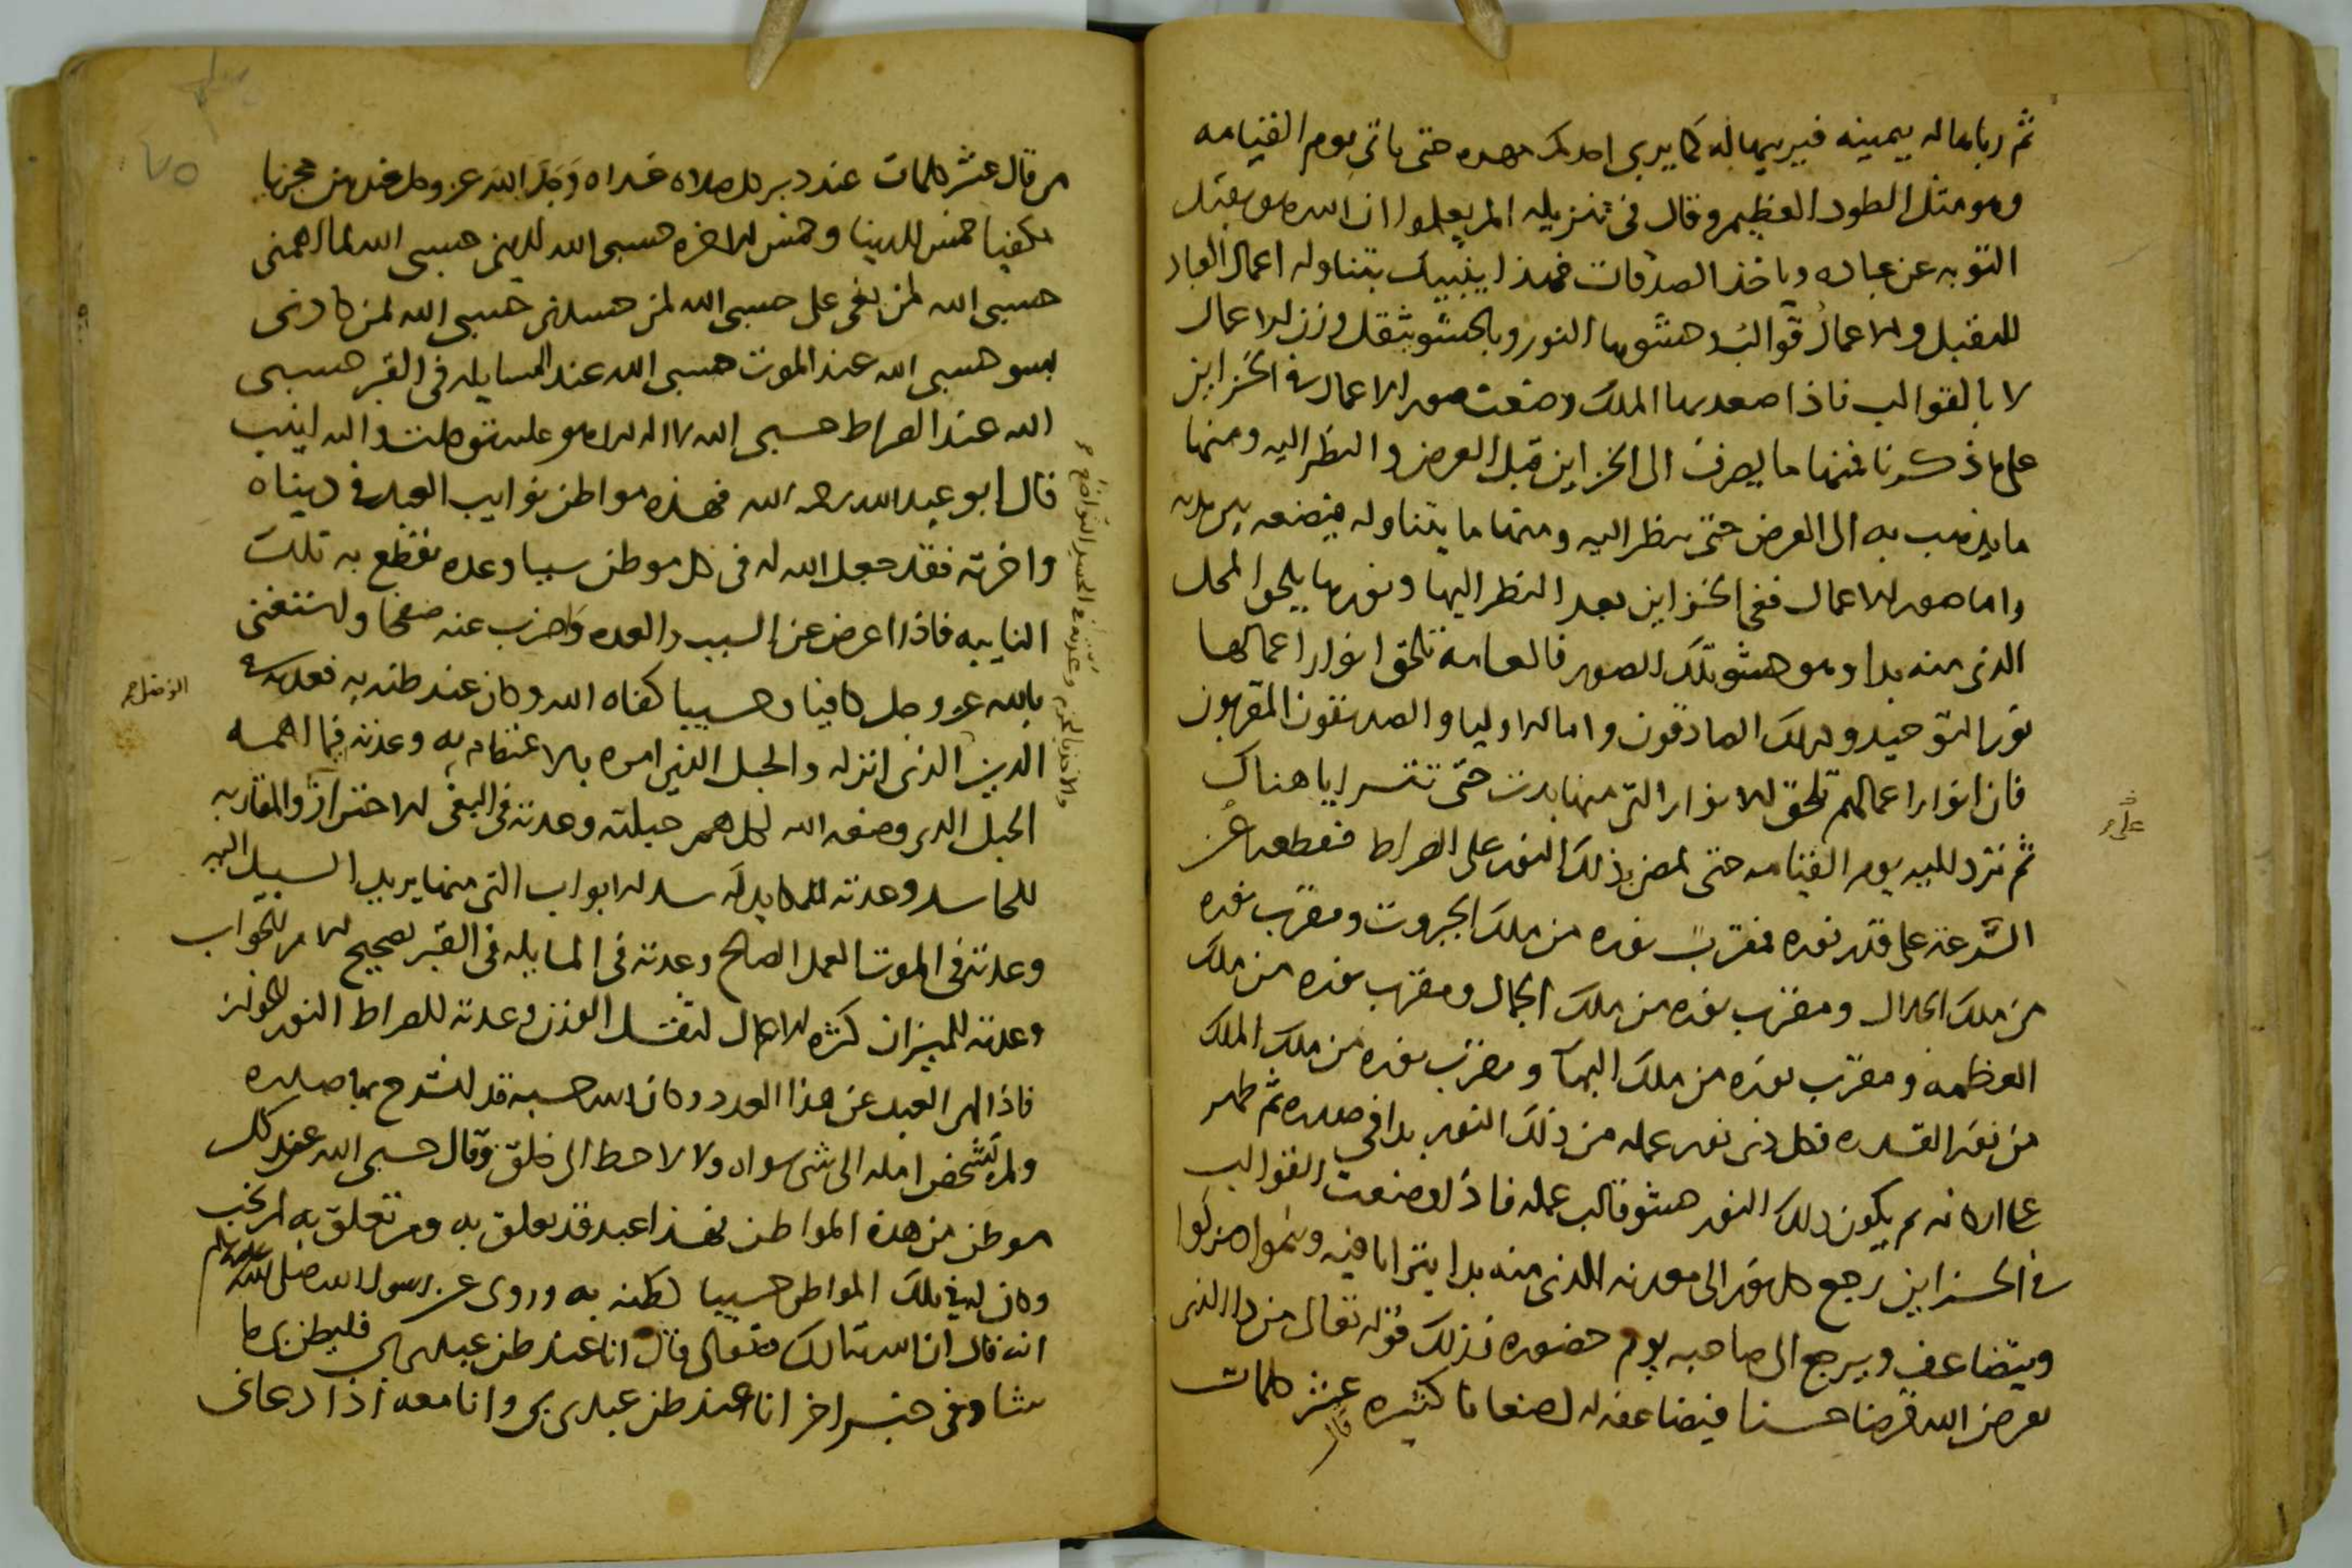 ثم رباها له بيمينه فيربيها له كما يربى احدكم مهره حتى ياتى يوم القيامه
وهو مثل الطود العظيم وقال فى تنزيله الم يعلموا ان الله هو يقبل
التوبه عن عباده وياخذ الصدقات فهذا ينبيك بتناوله اعمال العباد
للمقبل والاعمال قوالب حشوها النور وبالحشو يثقل وزن الاعمال
لا بالقوالب فاذا صعد بها الملك وضعت صور الاعمال فى الخزاين
على ما ذكرنا فمنها ما يصرف الى الخزاين قبل العرض والنظر اليه ومنها
ما يذهب به الى العرض حتى ينظر اليه ومنها ما يتناوله فيضعه بين يديه
واما صور الاعمال ففى الخزاين بعد النظر اليها ونورها يلحق المحل
الذى منه بدا وهو حشو تلك الصور فالعامه تلحق انوار اعمالها
نور التوحيد وكذلك الصادقون واما الاوليا والصديقون المقربون
فان انوار اعمالهم تلحق الانوار التى منها بدت حتى تتسرايا هناك
ثم ترد اليه يوم القيامه حتى تمضى بذلك النور على الصراط فيقطعها عن
السرعه على قدر نوره فمقرب نوره من ملك الجبروت ومقرب نوره
من ملك الجلال ومقرب نوره من ملك الجمال ومقرب نوره من ملك
العظمه ومقرب نوره من ملك البهآ ومقرب نوره من ملك الملك
من نور القدره فكل ذى نور عمله من ذلك النور بدا فى صدره ثم ظهر
على اركانه ثم يكون ذلك النور حشو قالب عمله فاذا وضعت القوالب
فى الخزاين رجع كل نور الى معدنه الذى منه بدا يترايا فيه وينموا ويزكوا
ويتضاعف ويرجع الى صاحبه يوم حضوره فذلك قوله تعالى من ذا الذى
يقرض الله قرضا حسنا فيضاعفه له اضعافا كثيره عشر كلمات
قال
على
من قال عشر كلمات عند دبر كل صلاه غداه وجد الله عز وجل عندهن مجزيا
مكفيا خمس للدنيا وخمس للاخره حسبى الله لدينى حسبى الله لما اهمنى
حسبى الله لمن بغى على حسبى الله لمن حسدنى حسبى الله لمن كادنى
بسو حسبى الله عند الموت حسبى الله عند المسايله فى القبر حسبى
الله عند الصراط حسبى الله لا اله الا هو عليه توكلت واليه انيب
قال ابو عبد الله رحمه الله فهذه مواطن نوايب العبد فى دنياه
واخرته فقد جعل الله له فى كل موطن سببا وعده يقطع به تلك
النايبه فاذا اعرض عن السبب والعده واضرب عنه صفحا واستغنى
بالله عز وجل كافيا وحسيبا كفاه الله وكان عند ظنه به فعدته فى
الدين الذى انزله والحبل الذى امره بالاعتصام به وعدته فيما اهمه
الحبل الذى وضعه الله لكل هم حيلته وعدته فى البغى الاحتراز والمقاربه
للحاسد وعدته للمكايد له سد الابواب التى منها يريد السبيل اليه
وعدته فى الموت العمل الصالح وعدته فى المسايله فى القبر تصحيح الامر للجواب
وعدته للميزان كثره الاعمال لتثقل الوزن وعدته للصراط النور للجواز
فاذا لهى العبد عن هذا العدد وكان الله حسبه قد انشرح بها صدره
ولم يشخص امله الى شى سواه ولا لاحظ الى خلق وقال حسبى الله عند كل
موطن من هذه المواطن فهذا عبد قد تعلق به ومن تعلق به لم يخب
وكان له فى تلك المواطن حسيبا لظنه به وروى عن رسول الله صلى الله عليه وسلم
انه قال ان الله تبارك وتعالى قال انا عند ظن عبدى بى فليظن بى ما
شا وفى خبر اخر انا عند ظن عبدى بى وانا معه اذا دعانى